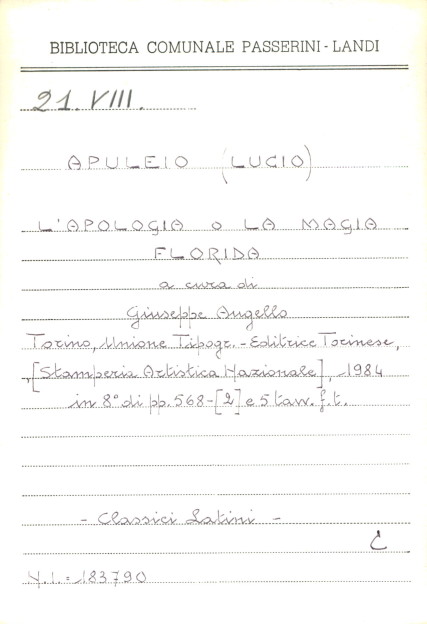 BIBLIOTECA COMUNALE PASSERINI - LANDI
21. VIII.
APULEIO (LUCIO)
L'APOLOGIA o LA MAGIA
FLORIDA
a cura di
Giuseppe Augello
Torino, Unione Tipogr. - Editrice Torinese,
[Stamperia Artistica Nazionale], 1984
in 8° di pp. 568-[2] e 5 tavv. f.t.
- Classici Latini -
C
N.I. = 183790